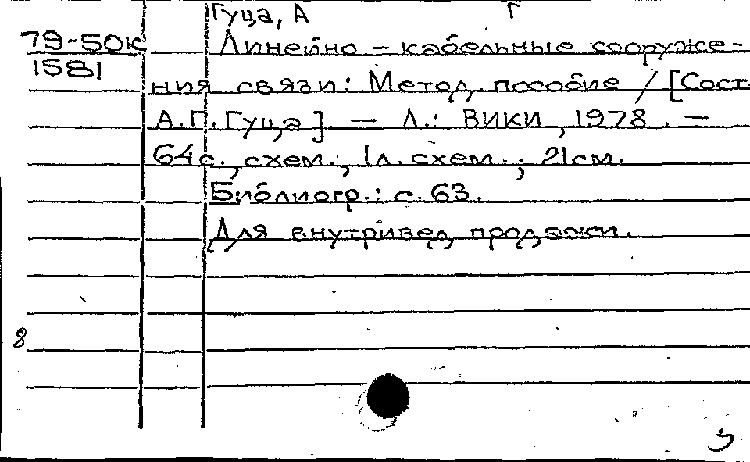 Гуца, А Г
79-50к Линейно-кабельные сооруже-
1581
ния связи: Метод. пособие / [Сост.
А.Г. Гуца] — Л.: ВИКИ, 1978. —
64с., схем., 1л. схем.; 21см.
Библиогр.: с. 63.
Для внутривед. продажи.
8